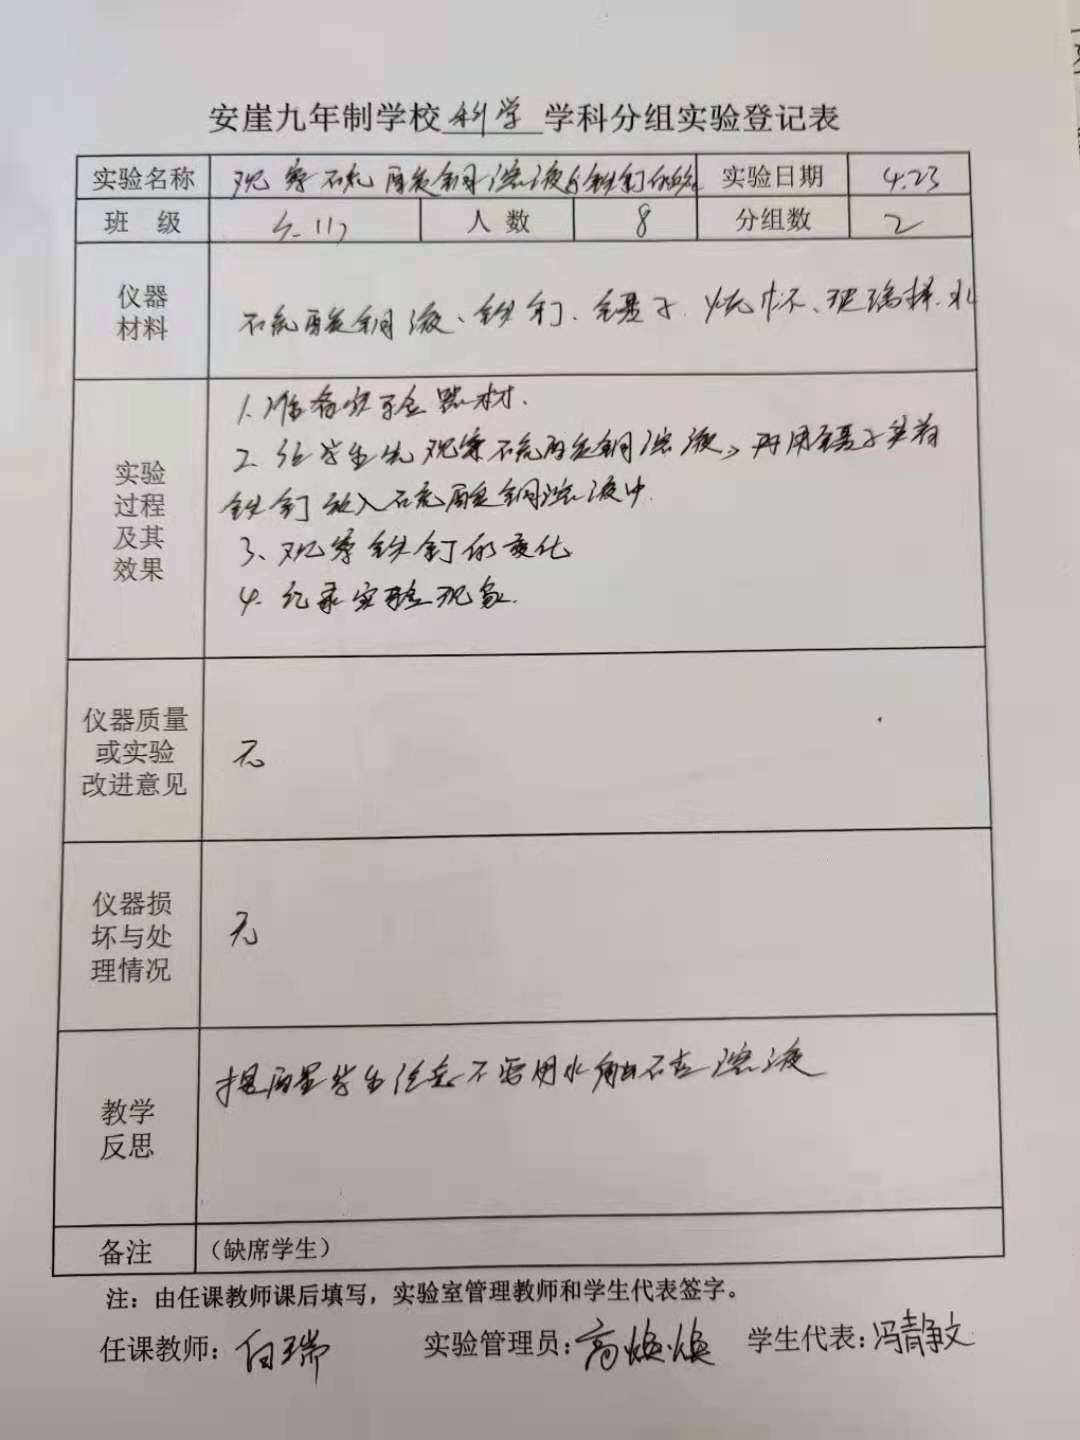 安崖九年制学校 科学 学科分组实验登记表
实验名称 观察硫酸铜溶液与铁钉的 实验日期 4.23
班 级 人数 8 分组数 2
仪器
材料
硫酸铜液、铁钉、镊子、烧杯、玻璃棒、水
实验
过程
及其
效果
1.准备实验器材.
2.让学生先观察硫酸铜溶液,再用镊子夹着
铁钉放入硫酸铜溶液中.
3、观察铁钉的变化
4.纪录实验现象.
仪器质量
或实验
改进意见
无
仪器损
坏与处
理情况
无
教学
反思
提醒学生注意不要用水触碰溶液
备注 (缺席学生)
注:由任课教师课后填写,实验室管理教师和学生代表签字。
任课教师:白瑞 实验管理员:高焕焕 学生代表:冯静文